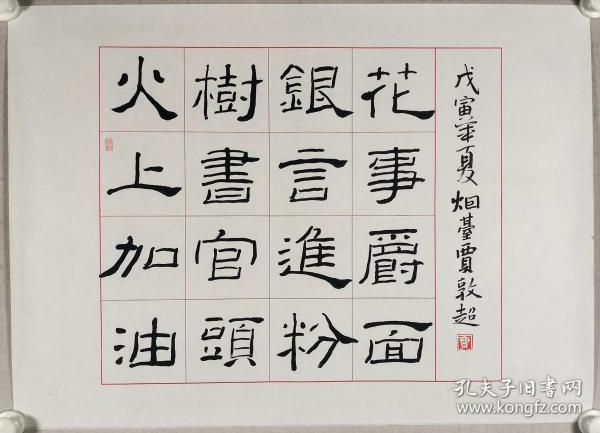 火樹銀花
上書言事
加官進爵
油頭粉面
戊寅年夏烟臺賈敦超
孔夫子旧书网
www.kongfz.com